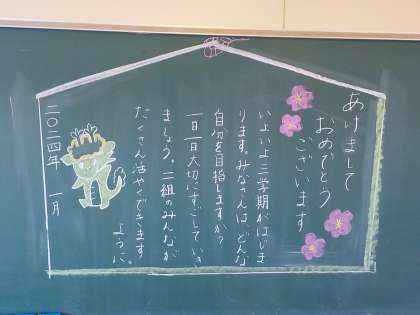 あけまして
おめでとう
ございます
いよいよ三学期がはじま
ります。みなさんは、どんな
自分を目指しますか？
一日一日大切にすごしていき
ましょう。二組のみんなが
たくさん活やくできます
ように。
二〇二四年　一月